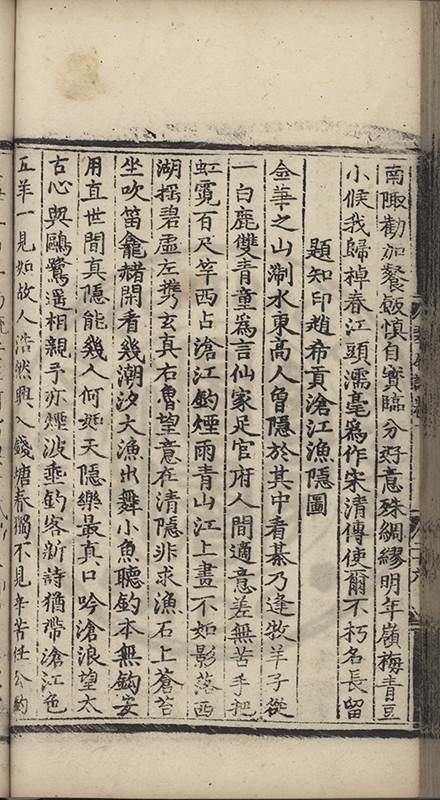 南陬勸加餐飯慎自寶臨分好意殊綢繆明年嶺梅青豆
小候我歸棹春江頭濡毫爲作宋清傳使爾不朽名長留
題知印趙希貢滄江漁隱圖
金華之山淛水東高人曾隱於其中看棊乃逢牧羊子從
一白鹿雙青童爲言仙家足官府人間適意差無苦手把
虹霓百尺竿西占滄江釣煙雨青山江上畫不如影落西
湖揺碧虛左携玄真右魯望意在清隱非求漁石上蒼苔
坐吹笛龕赭閑看幾潮汐大漁出舞小魚聽釣本無鈎安
用直世間真隱能幾人何如天隱樂最真口吟滄浪望太
古心與鷗鷺遥相親予亦煙波垂釣客新詩猶帶滄江色
五羊一見如故人浩然興入錢塘春獨不見辛苦任公釣